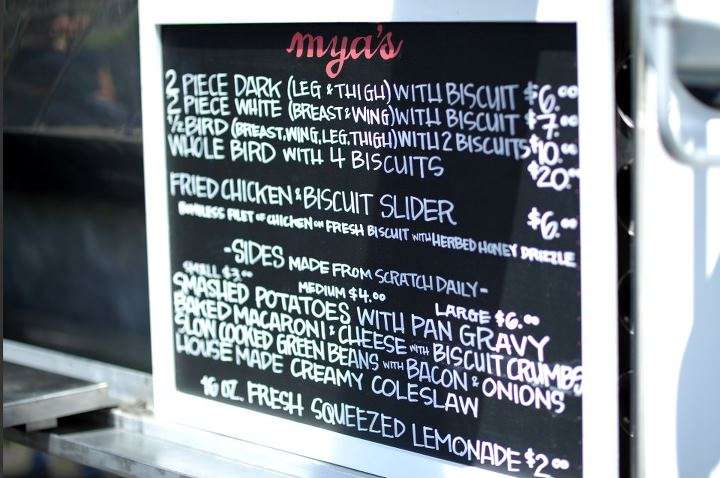 mya's
2 PIECE DARK (LEG & THIGH) WITH BISCUIT $6.00
2 PIECE WHITE (BREAST & WING) WITH BISCUIT $7.00
1/2 BIRD (BREAST, WING, LEG, THIGH) WITH 2 BISCUITS $10.00
WHOLE BIRD WITH 4 BISCUITS $20.00
FRIED CHICKEN & BISCUIT SLIDER $6.00
BONELESS FILET OF CHICKEN ON FRESH BISCUIT WITH HERBED HONEY DRIZZLE
-SIDES MADE FROM SCRATCH DAILY-
SMALL $3.00 MEDIUM $4.00 LARGE $6.00
SMASHED POTATOES WITH PAN GRAVY
BAKED MACARONI & CHEESE WITH BISCUIT CRUMBS
SLOW COOKED GREEN BEANS WITH BACON & ONIONS
HOUSE MADE CREAMY COLESLAW
16 OZ. FRESH SQUEEZED LEMONADE $2.00